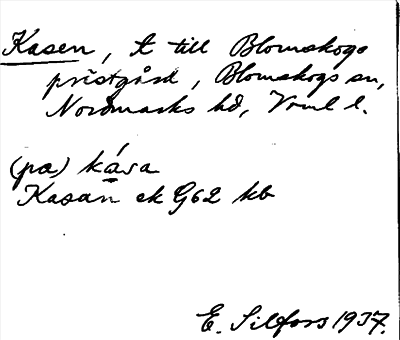 Kasen, t till Blomskogs
prästgård, Blomskogs sn,
Nordmarks hd, Vrml l.
(pa) kása
Kasan ek G62 kb
E. Silfors 1937.